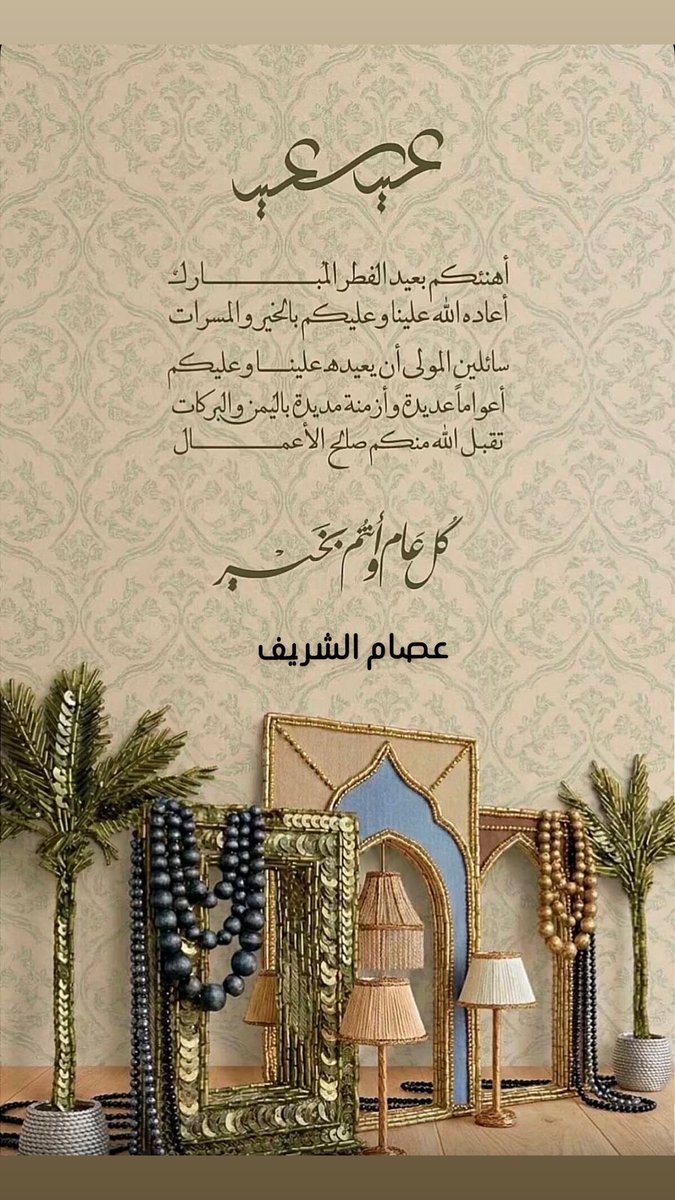 عيد سعيد
أهنئكم بعيد الفطر المبارك
أعاده الله علينا وعليكم بالخير والمسرات
سائلين المولى أن يعيده علينا وعليكم
أعواماً عديدة وأزمنة مديدة باليمن والبركات
تقبل الله منكم صالح الأعمال
كُل عَام وأنتُم بخَيْر
عصام الشريف